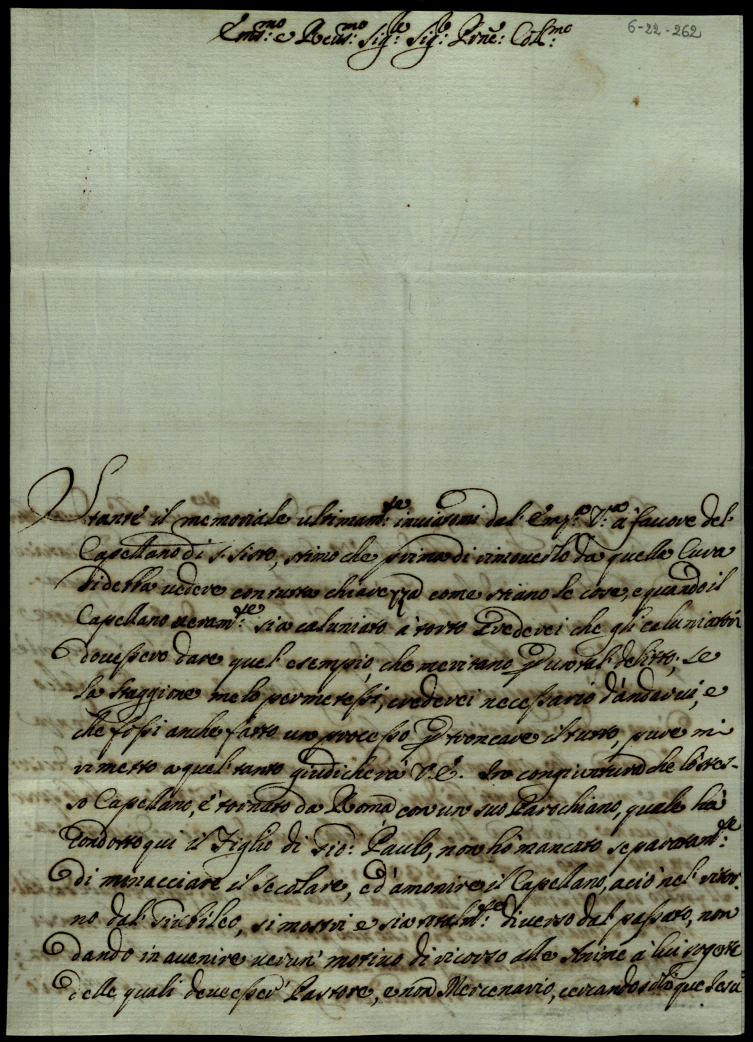 Em.mo e Reu.mo Sig.re Sig.re Prñe: Col.mo
6-22-262
Stante il memoriale ultimam.te inviatomi dal Em.o V.a à fauore del
Capellano di S. Sisto, stimo che prima di rimouerlo da quella Cura
si debba uedere con tutta chiarezza come stiano le cose, e quando il
Capellano ueram.te sia caluniato à torto crederei che gli caluniatori
douessero dare quel esempio, che meritano p un tal delitto; se
la staggione me lo permetessi, crederei necessario d'andarui, e
che fossi anche fatto un processo p troncare il tutto, pure mi
rimetto a quel tanto giudicherà V.E. In congiuntura che lo stes-
so Capellano, è tornato da Roma con un suo Parochiano, quale hà
condotto qui il Figlio di Gio: Paulo, non hò mancato separatam.te
di minacciare il secolare, ed'amonire il Capellano, aciò nel ritor-
no dal Giubileo, si mostri e sia totalm.te diuerso dal passato, non
dando in auenire uerun' motiuo di ricorso alle Anime à lui sogette
delle quali deue esser' Pastore, e non Mercenario, cercando solo que Iesu